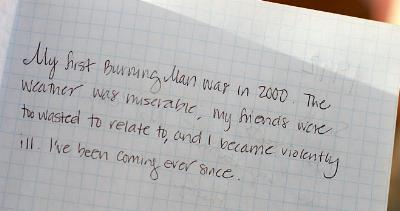 My first Burning Man was in 2000. The
weather was miserable, my friends were
too wasted to relate to, and I became violently
ill. I've been coming ever since.